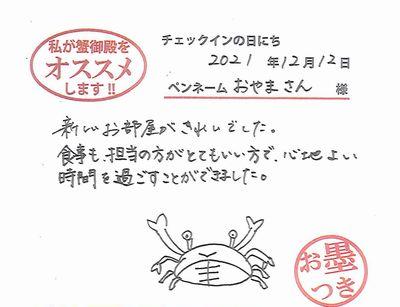 私が蟹御殿を
オススメ
します!!
チェックインの日にち
2021 年12月12日
ペンネーム おやまさん 様
新しいお部屋がきれいでした。
食事も、担当の方がとてもいい方で、心地よい
時間を過ごすことができました。
お墨
つき